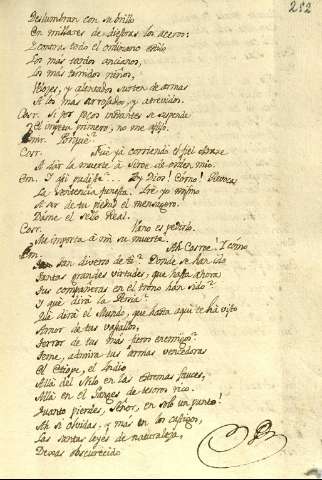 252
Deslumbran con su brillo
En millares de diestros los aceros:
Contra todo el ordinario estilo
Los mas tardos ancianos,
Los mas tiernos niños,
Flojos, y alentados surten de armas
A los mas arrojados, y atrevidos.
Cosr. Si por pocos instantes se suspende
el impetu primero, no me aflijo.
Emir. Porquè?
Cosr. Fuè ya corriendo el fiel
A dar la muerte à Siroe de orden mio.
Em. Y asi pudiste... Ay Dios! Còmo! Revoca
La sentencia funesta. Irè yo mismo
A ser de tu piedad el mensagero.
Dàme el sello Real.
Cosr. Vano es pedirlo.
Me importa à mi su muerte.
Em. Ah Cosroe! I còmo
tan diverso de tì? Donde se han ido
tantas grandes virtudes, que hasta ahora
Tus compañeras en el trono han sido?
Y què dirà la Persia?
Què dirà el Mundo, que hasta aqui te hà visto
Amor de tus vasallos,
Terror de tus mas fieros enemigos?
Teme, admira tus armas vencedoras
El Etiope, el Indio
Allà del Nilo en las estremas fauces,
Allà en el Ganges de tesoros rico.
Quanto pierdes, Señor, en solo un punto!
Ah si olvidas, y mas en los castigos,
Las santas leyes de naturaleza,
Dexas obscurecido